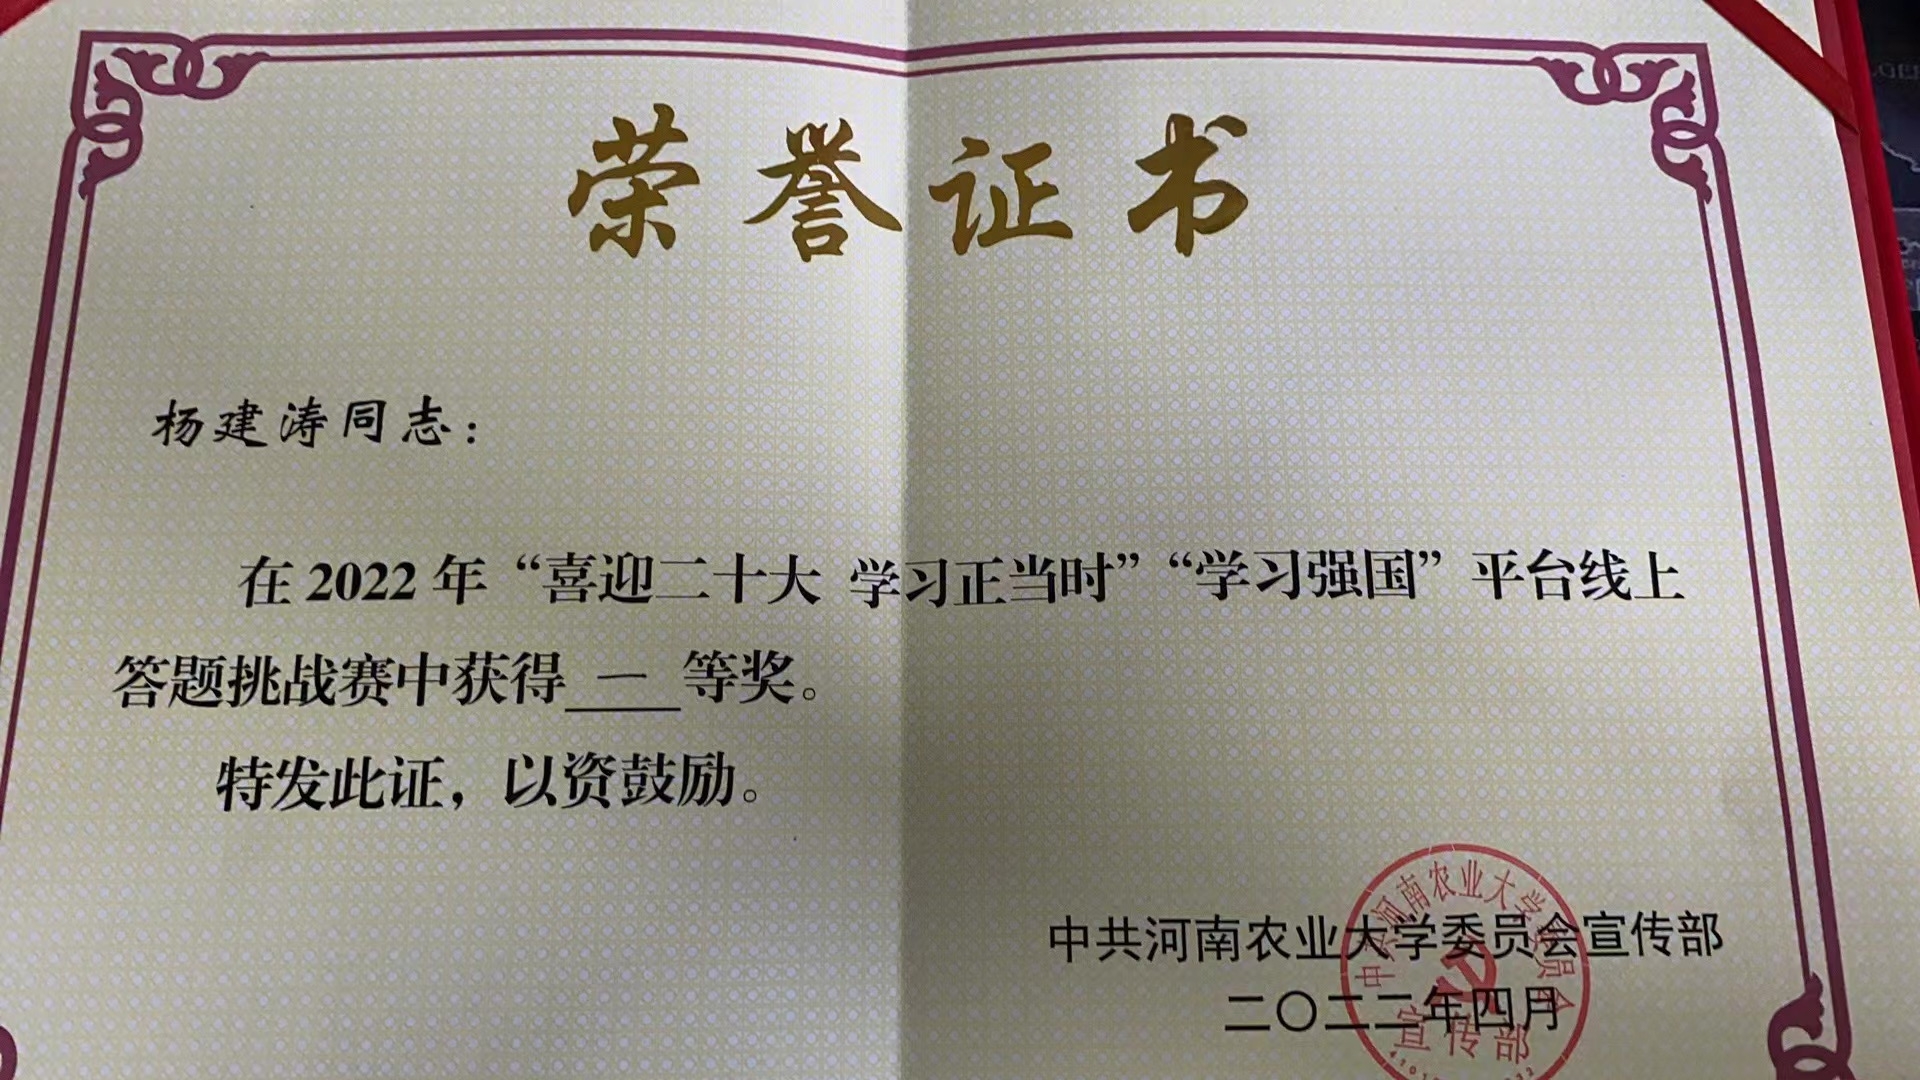 荣誉证书
杨建涛同志：
在2022年“喜迎二十大 学习正当时”“学习强国”平台线上
答题挑战赛中获得 一 等奖。
特发此证，以资鼓励。
中共河南农业大学委员会宣传部
二〇二二年四月
中共河南农业大学委员会
宣传部